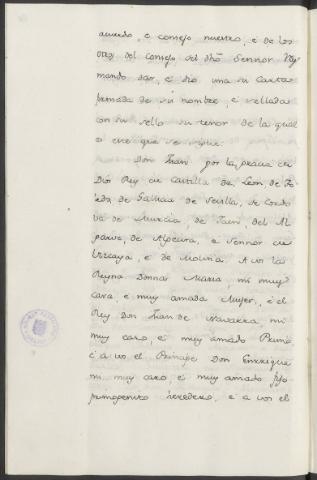 acuerdo, e consejo nuestro, e de los
otros del Consejo del dho Sennor Rey
mando dar, e dio una su Carta
firmada de su nombre, e sellada
con su sello su tenor de la qual
e este que se sigue.
Don Juan por la gracia de
Dios Rey de Castilla de Leon de To
ledo de Galicia de Sevilla, de Cordo
va de Murcia, de Jaen, del Al
garve, de Algecira, e Sennor de
Vizcaya, e de Molina. A vos la
Reyna Donna Maria, mi muy
cara e muy amada Muger, e el
Rey Don Juan de Navarra, mi
muy caro e muy amado Primo,
e a vos el Principe Don Enrrique
mi muy caro e muy amado fijo
primogenito heredero, e a vos el